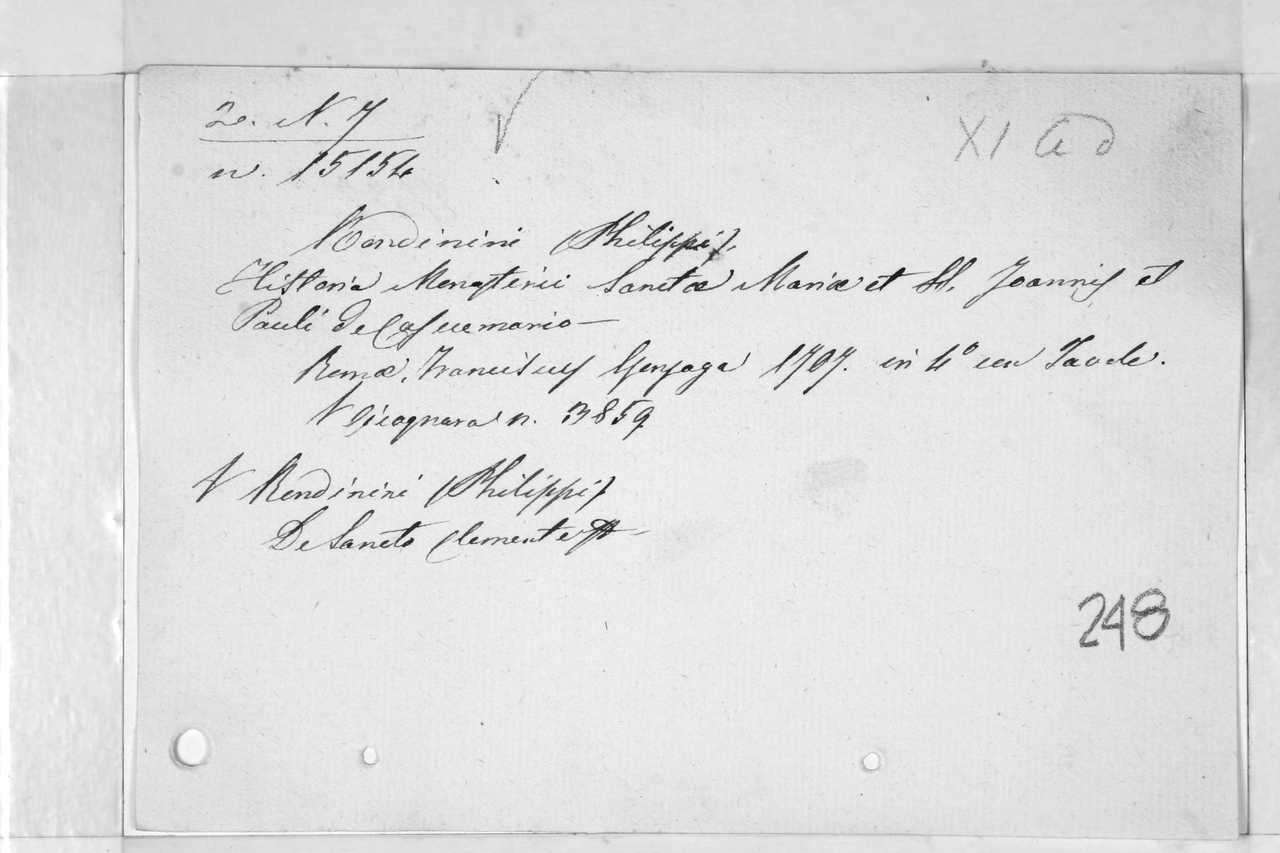 2. N. 7
XI a d
n. 15154
Rondinini (Philippi).
Historia Monasterii Sanctæ Mariæ et SS. Joannis et
Pauli de Casæmario —
Romæ, Franciscus Gonzaga 1707. in 4° con Tavole.
V Cicognara n. 3859
V Rondinini (Philippi)
De Sancto Clemente PP —
248